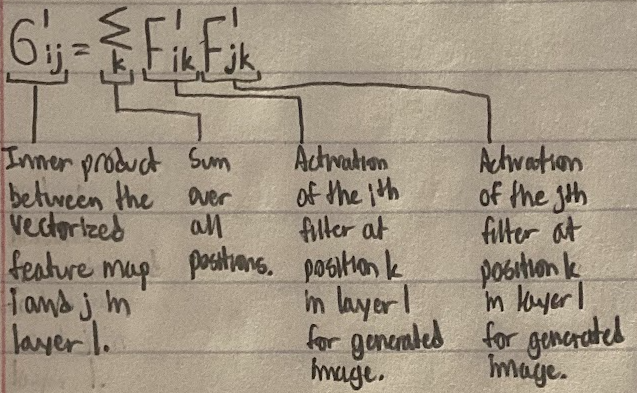 G^l_ij = Σ_k F^l_ik F^l_jk
Inner product
between the
vectorized
feature map
i and j in
layer l.
Sum
over
all
positions.
Activation
of the ith
filter at
position k
in layer l
for generated
image.
Activation
of the jth
filter at
position k
in layer l
for generated
image.